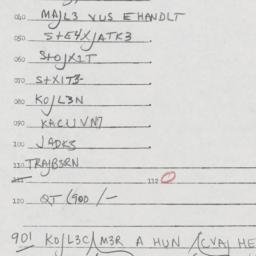 040 MAJL3 VUS EHANDLT
050 S+E4XJATK3.
060 S+OJXIT.
070 S+XIT3-.
080 KOJL3N.
090 KACUVN7.
100 J9DK3.
110 TRAJBSRN
111 112 0
120 QT (900 /-
901 KOJL3C/M3R A HUN /CVAJ HE